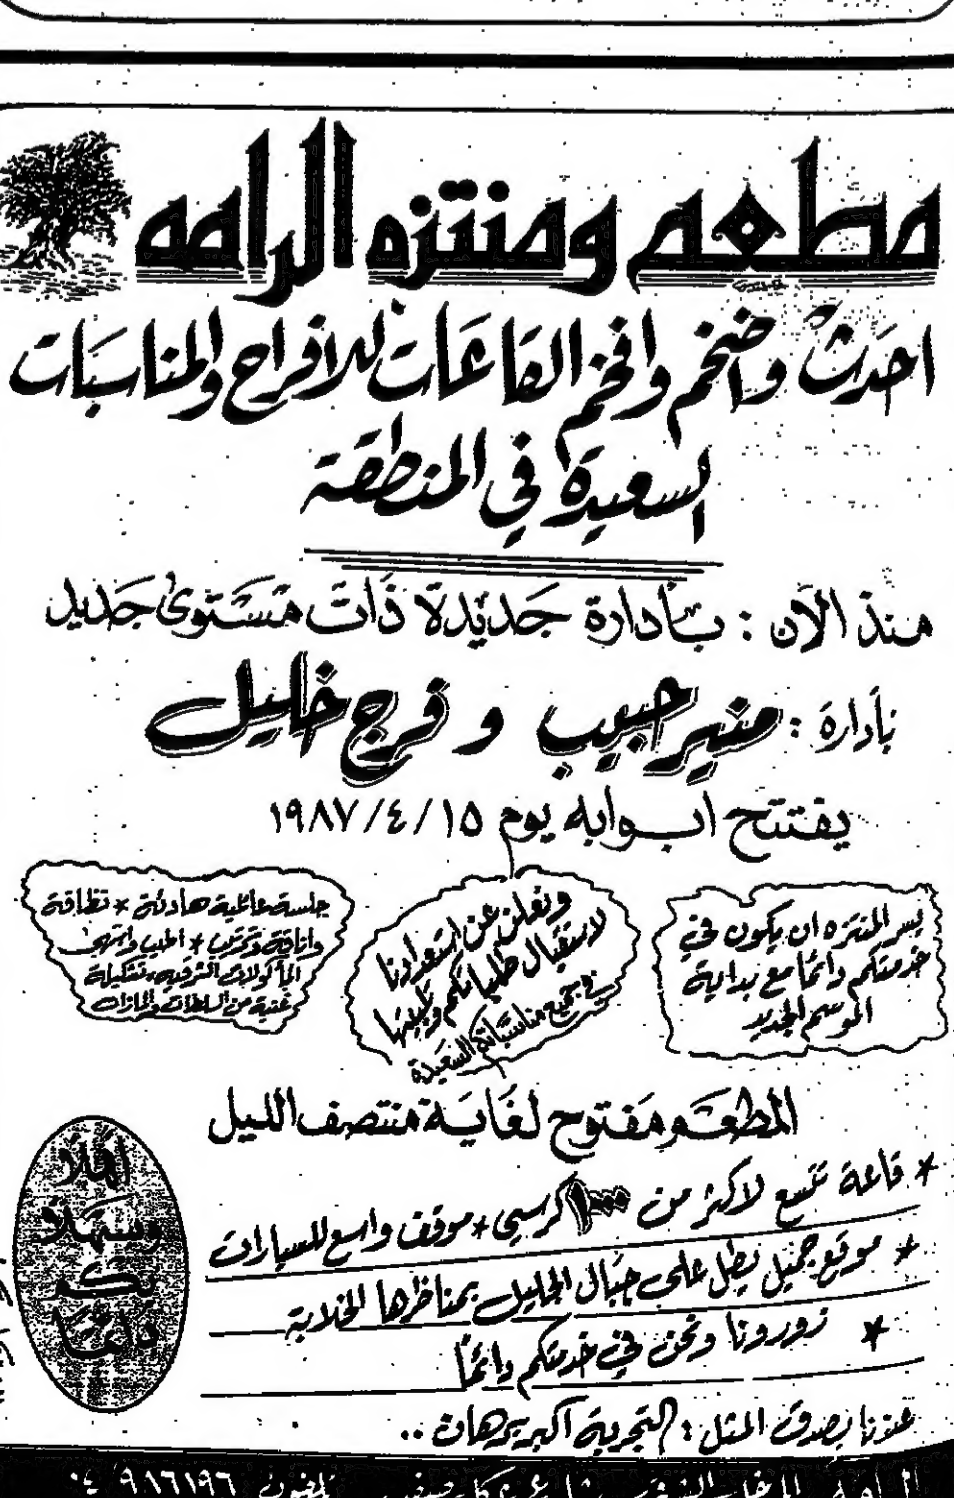 مطعم ومنتزه الرامه
احدث واضخم وافخم القاعات للافراح والمناسبات
السعيدة في المنطقة
منذ الآن : بأدارة جديدة ذات مستوى جديد
بأدارة : منير حبيب و فرج خليل
يفتتح ابوابه يوم ١٩٨٧/٤/١٥
يسر المنتزه ان يكون في
خدمتكم دائما مع بداية
الموسم الجديد
ونعلن عن استعدادنا
لاستقبال طلباتكم وتلبيتها
في جميع مناسباتكم السعيدة
جلسة عائلية هادئة * نظافة
واناقة وترتيب * اطيب واشهى
المأكولات الشرقية بتشكيلة
غنية من السلطات والمازات
المطعم مفتوح لغاية منتصف الليل
* قاعة تتسع لاكثر من كرسي * موقف واسع للسيارات
* موقع جميل يطل على جبال الجليل بمناظرها الخلابة
* زورونا ونحن في خدمتكم دائماً
أهلاً
وسهلاً
بكم
دائماً
عندنا يصدق المثل : التجربة اكبر برهان ..
الرامة المدخل شارع تلفون ٩٨٦١٩٦ ٠٤